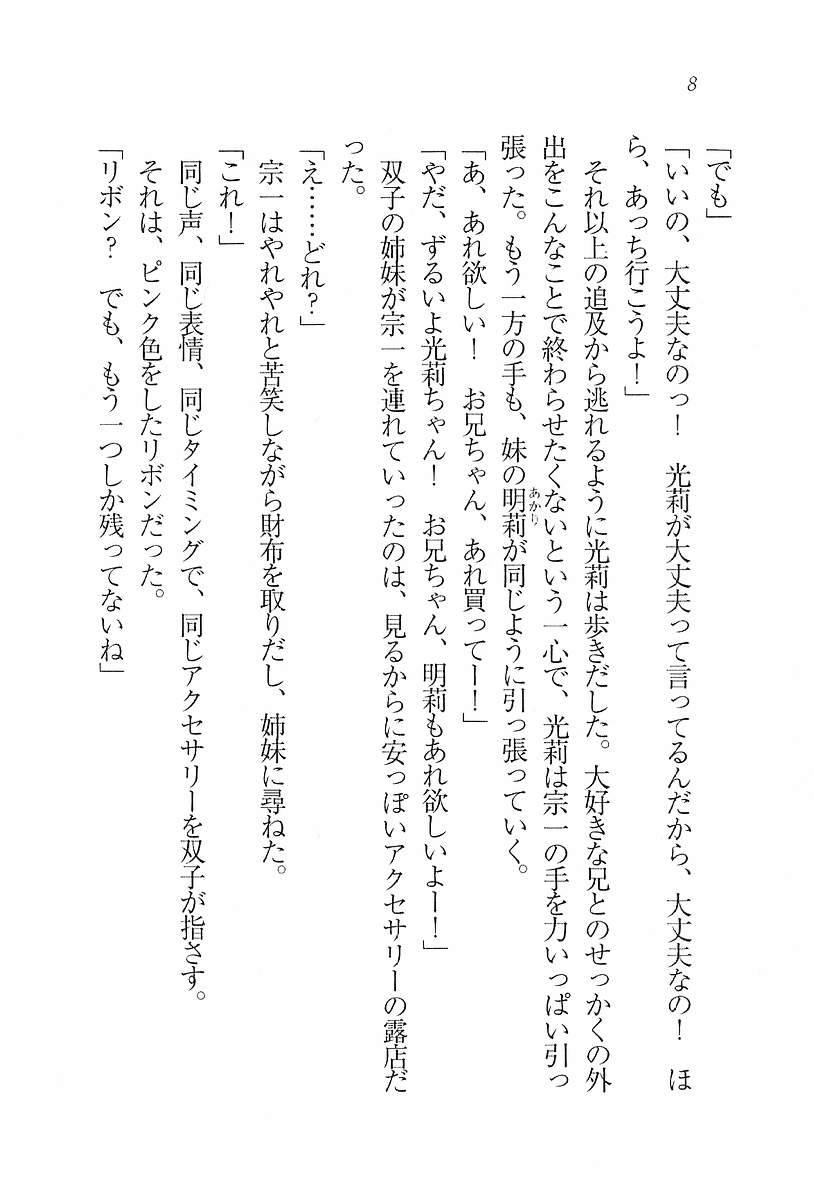 8
「でも」
「いいの、大丈夫なのっ！　光莉が大丈夫って言ってるんだから、大丈夫なの！　ほ
ら、あっち行こうよ！」
　それ以上の追及から逃れるように光莉は歩きだした。大好きな兄とのせっかくの外
出をこんなことで終わらせたくないという一心で、光莉は宗一の手を力いっぱい引っ
張った。もう一方の手も、妹の明莉あかりが同じように引っ張っていく。
「あ、あれ欲しい！　お兄ちゃん、あれ買ってー！」
「やだ、ずるいよ光莉ちゃん！　お兄ちゃん、明莉もあれ欲しいよー！」
　双子の姉妹が宗一を連れていったのは、見るからに安っぽいアクセサリーの露店だ
った。
「え……どれ？」
　宗一はやれやれと苦笑しながら財布を取りだし、姉妹に尋ねた。
「これ！」
　同じ声、同じ表情、同じタイミングで、同じアクセサリーを双子が指さす。
　それは、ピンク色をしたリボンだった。
「リボン？　でも、もう一つしか残ってないね」